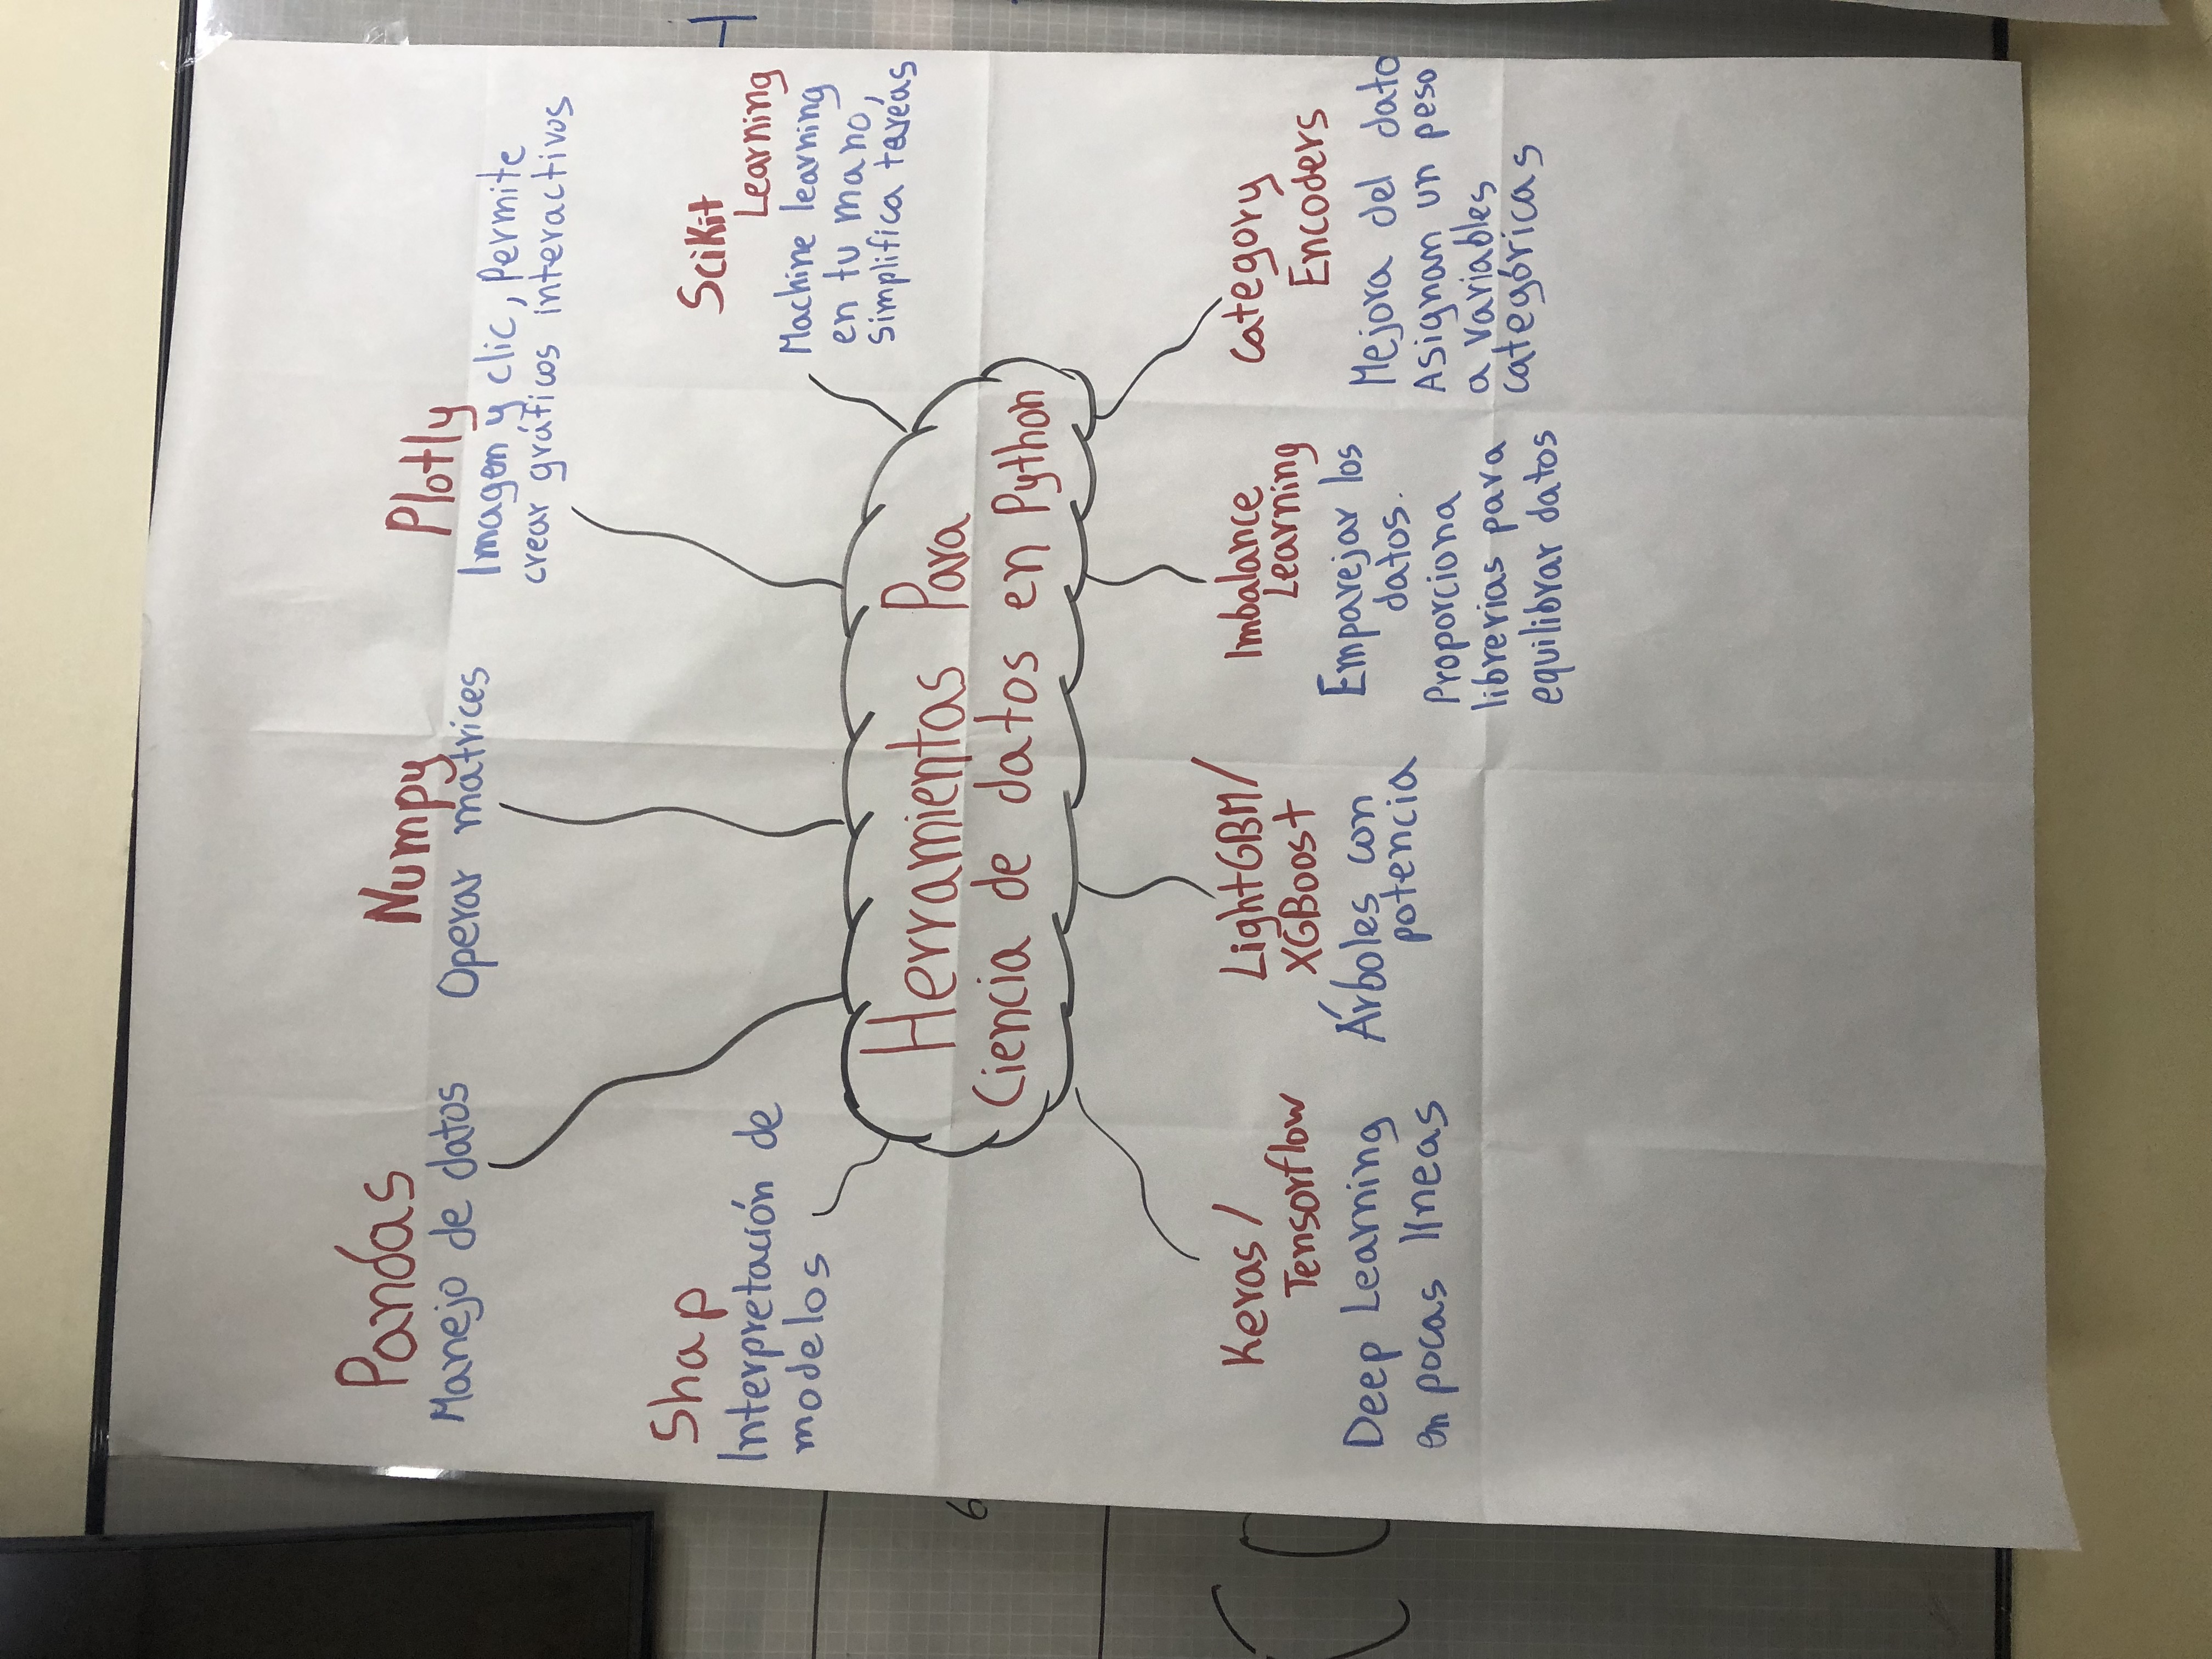 Pandas
Manejo de datos
Numpy
Operar matrices
Plotly
Imagen y clic, Permite
crear gráficos interactivos
Shap
Interpretación de
modelos
Scikit
Learning
Machine learning
en tu mano,
simplifica tareas
Herramientas Para
Ciencia de datos en Python
Keras/
Tensorflow
Deep Learning
en pocas líneas
LightGBM/
XGBoost
Árboles con
potencia
Imbalance
Learning
Emparejar los
datos.
Proporciona
librerias para
equilibrar datos
Category
Encoders
Mejora del dato
Asignam un peso
a variables
categóricas
6